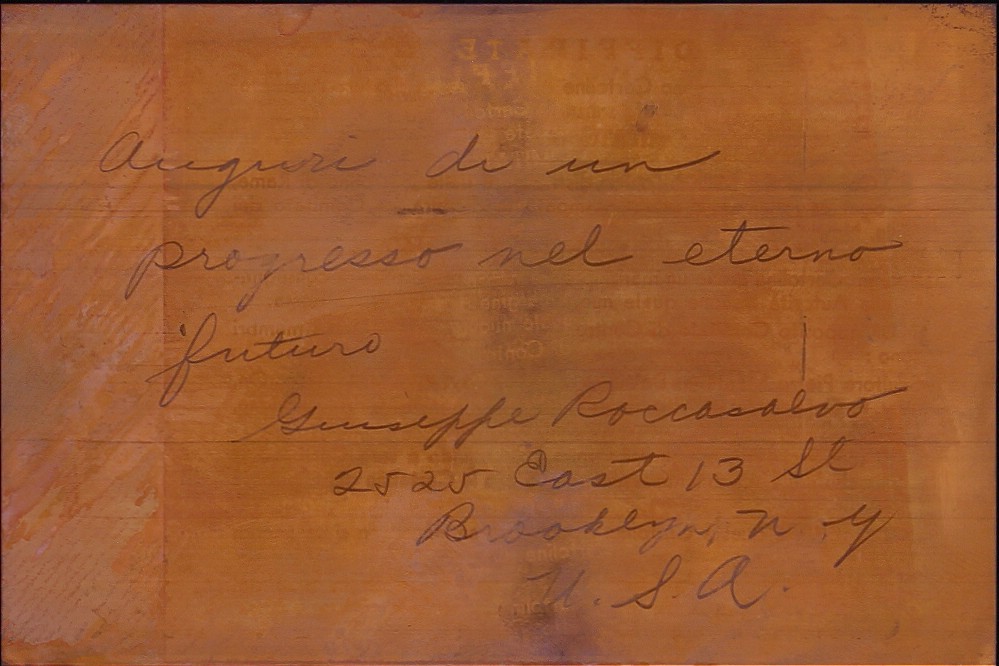 Auguri di un
progresso nel eterno
futuro
Giuseppe Roccasalvo
2525 East 13 St
Brooklyn, N. Y
U. S. A.